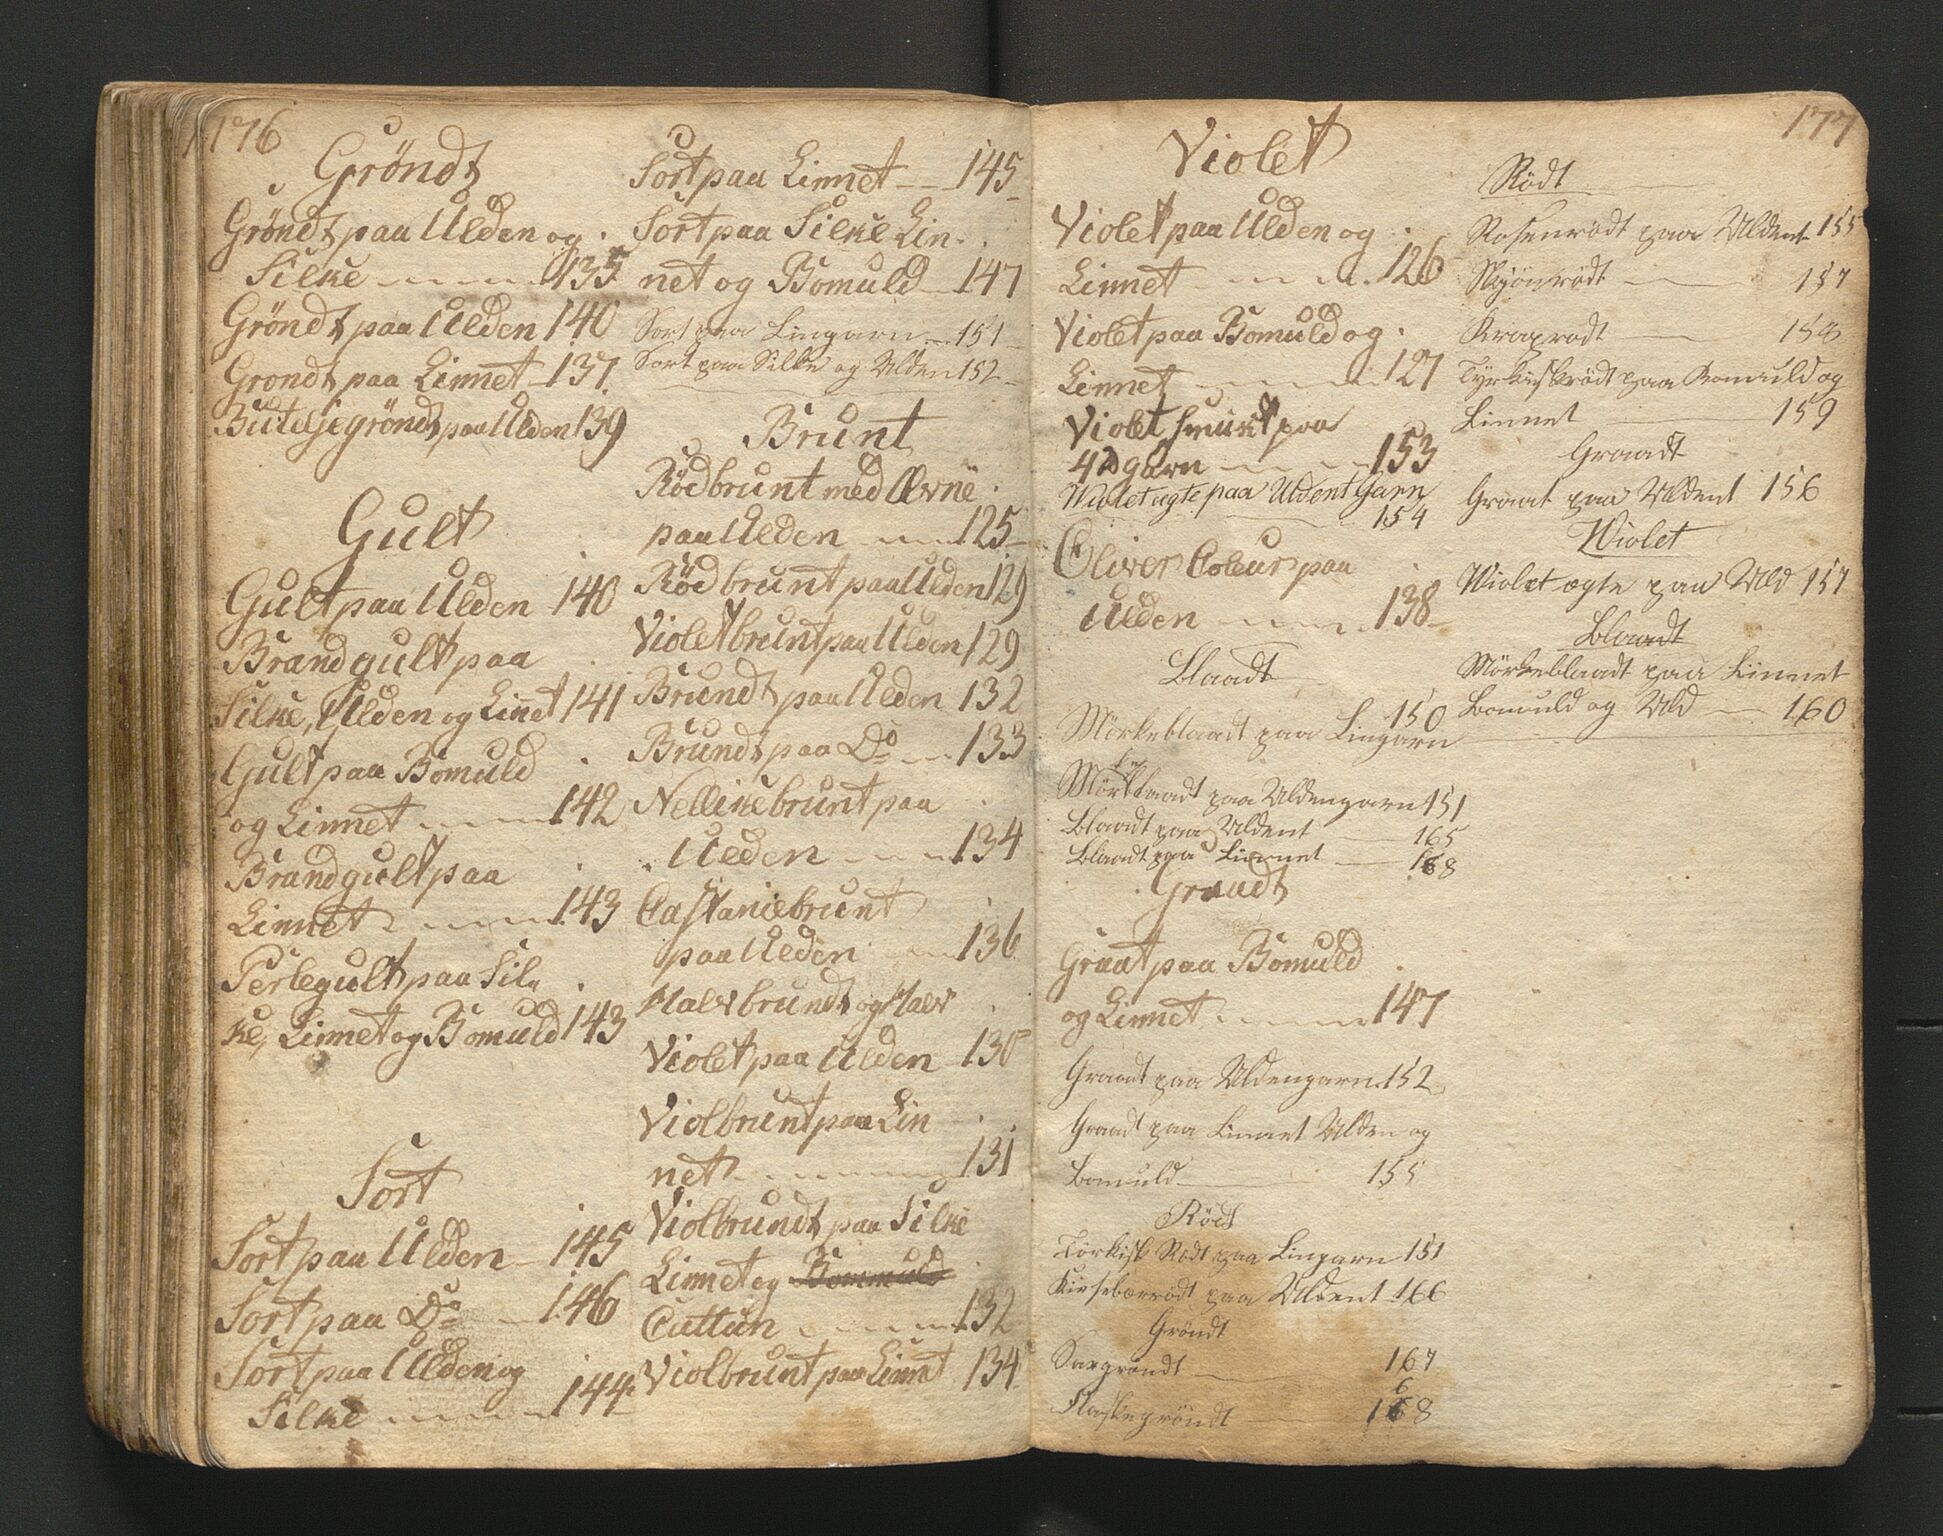 176
Gröndt
Gröndt paa Ulden og
Silke 135
Gröndt paa Ulden 140
Grondt paa Linnet 137
Buteljegröndt paa Ulden 139
Gult
Gult paa Ulden 140
Brandgult paa
Silke, Ulden og Linet 141
Gult paa Bomuld
og Linnet 142
Brandgult paa
Linnet 143
Perlegult paa Sil
ke, Linnet og Bomuld 143
Sort
Sort paa Ulden 145
Sort paa Do 146
Sort paa Ulden og
Silke 144
Sort paa Linnet 145
Sort paa Silke Lin
net og Bomuld 147
Sort paa Lingarn 151
Sort paa Silke og Ulden 152
Brunt
Rödbrunt med Ævne
paa Ulden 125
Rödbrunt paa Ulden 129
Violetbrunt paa Ulden 129
Brundt paa Ulden 132
Brundt paa Do 133
Nellikebrunt paa
Ulden 134
Castaniebrunt
paa Ulden 136
Halvbrundt og Halv
Violet paa Ulden 130
Violbrunt paa Lin
net 131
Violbrundt paa Silke
Linnet og Bommuld
Cattun 132
Violbrunt paa Linnet 134
177
Violet
Violet paa Ulden og
Linnet 126
Violet paa Bomuld og
Linnet 127
Violet smukt paa
garn 153
Wiolet ægte paa Uldent Garn
154
Oliver Coleur paa
Ulden 138
Blaadt
150
Mörkeblaadt paa Lingarn
Mörkblaadt paa Uldengarn 151
Blaadt paa Uldent 165
Blaadt paa Linnet 168
Graadt
Graat paa Bomuld
og Linnet 147
Graadt paa Uldengarn 152
Graadt paa Linnet Ulden og
Bomuld 155
Rödt
Törkisk Rödt paa Lingarn 151
Kirsebærrödt paa Uldent 166
Gröndt
Saxgröndt 167
Flaskegröndt 168
Rödt
Rosenrödt paa Uldent 155
Skjönrödt 157
Kraprödt 158
Tyrkiskrödt paa Bomuld og
Linnet 159
Graadt
Graat paa Uldent 156
Wiolet
Wiolet ægte paa Uld 157
Blaadt
Mörkeblaadt paa Linnet
Bomuld og Uld 160